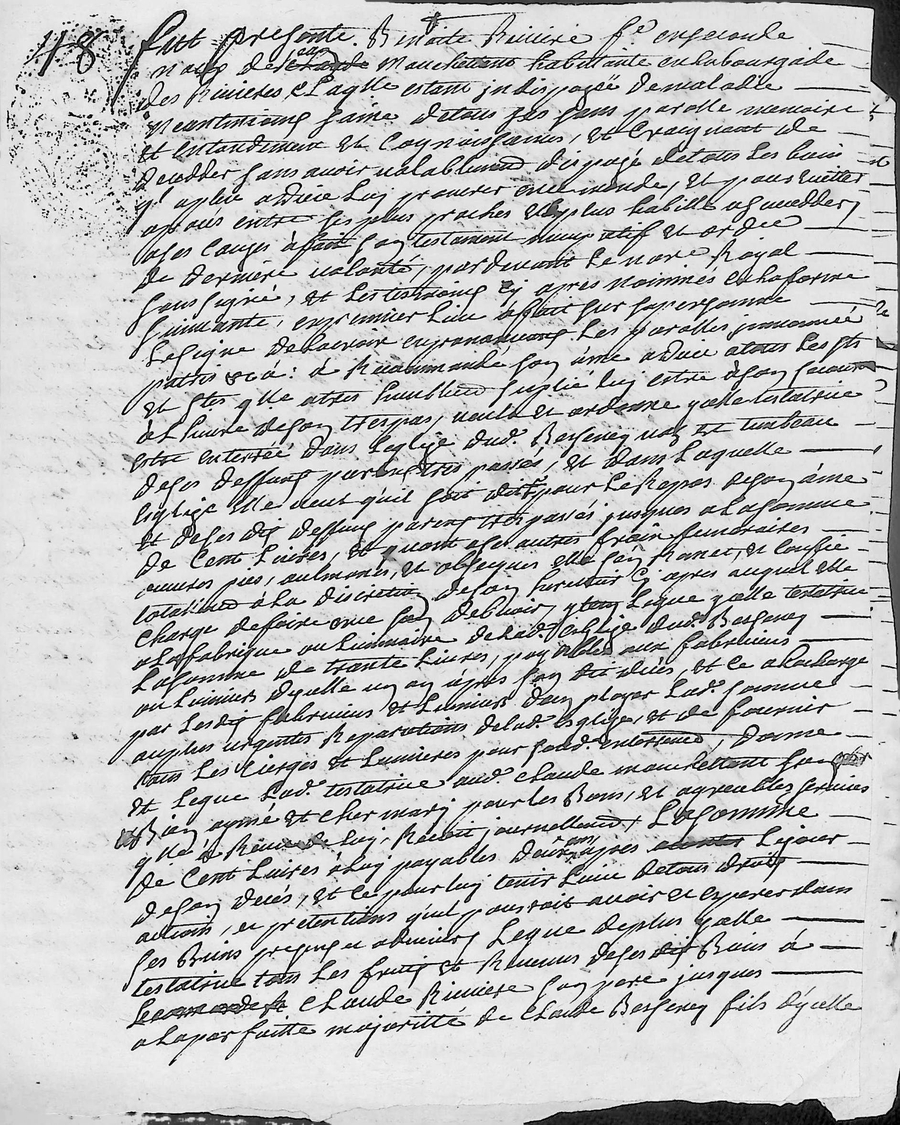 48 futt presente Benoite Riviere f.e en seconde
noces de Claude Mouchettant habitante en la bourgade
des Rivieres, Laq.lle estant indisposée de maladie
neantmoins saine de tous ses sens parolle memoire
et entandement et Cognoissance, et Craignant de
decedder sans avoir valablement disposé de tous les biens
qu'a pleu a Dieu luy prouvoir en ce monde, et pour eviter
a proces entre ses plus proches et plus habille a succedder,
a ses causes à fait son testament nuncupatif et ordce
de derniere volonté, par devant le no.re Royal
soussigné, et les tesmoins cy apres nommés en la forme
suivante, en premier lieu à fait sur sa personne
Le signe de la croix en prononceant les parolles in nomine
patris &ca: à Recommandé son ame a Dieu a tous les S.ts
et S.tes qu'elle a tres humblement suplié luy estre à son secours
à l'heure de son trespas, veult et ordonne q'elle testatrice
estre enterrée dans l'eglise dud. Besseney au tumbeau
de ses deffunts parens trespassés, et dans laquelle
Eglise elle veut qu'il soit dit pour le Repos de son ame
et de ses dits deffunts parens trespassés jusques a la somme
de Cent Livres, et quant a ses autres frais funeraires
œuvres pies, aulmones, et obseques elle s'en Remet, et confie
totalement à la discretion de son heritier cy apres auquel elle
charge de faire son debvoir, Legue q'elle testatrice
a la fabrique ou Luminaire de lad. Eglise dud. Besseney
La somme de trante Livres, payables aux fabriciens
ou Luminiers d'ycelle un an apres son deces, et ce a la charge
par lesd. fabriciens et Luminiers d'employer Lad. somme
au plus urgentes Reparations de lad. Eglise, et de fournir
tous les Cierges et Lumieres pour sond. enterrement, Donne
et Legue Lad. testatrice aud. Claude Mouchettant son
Bien aymé et cher mary pour les Bons, et agreables services
q'elle à Receu de luy, Reçoit journellement, La somme
de Cent Livres à luy payables d'un an apres Le jour
de son decés, et ce pour luy tenir Lieu de tous droits
actions, et pretentions qu'il pourroit avoir et esperer dans
ses Biens presents et advenirs Legue de plus q'elle
testatrice tous les fruits et Revenus de ses dits Biens à
Claude Riviere son pere jusques
a la parfaitte majoritté de Claude Besseney fils d'ycelle